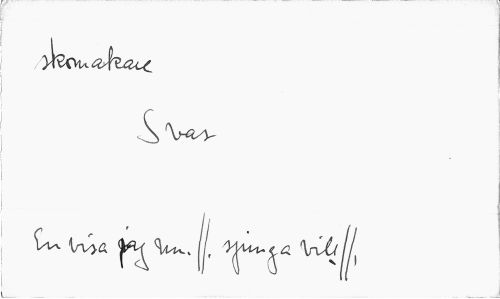 skomakare
Svar
En visa jag nu. //. sjunga vill //.